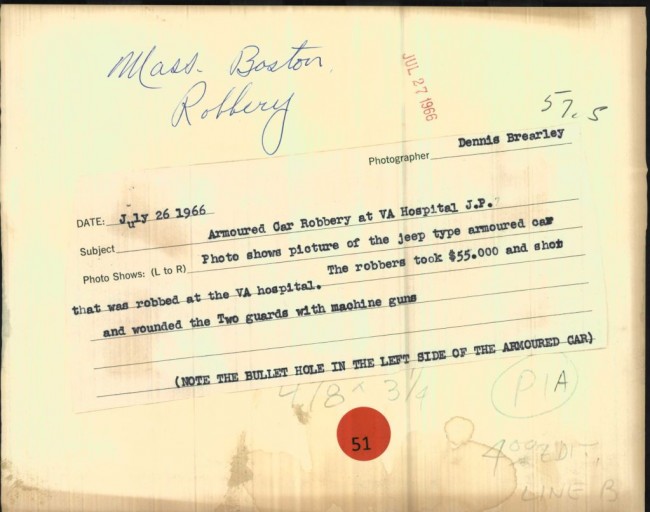 Mass. Boston
Robbery
JUL 27 1966
57.5
Photographer Dennis Brearley
DATE: July 26 1966
Subject Armoured Car Robbery at VA Hospital J.P.
Photo Shows: (L to R) Photo shows picture of the jeep type armoured car
that was robbed at the VA hospital. The robbers took $55.000 and shot
and wounded the Two guards with machine guns
(NOTE THE BULLET HOLE IN THE LEFT SIDE OF THE ARMOURED CAR)
4/8 x 3 1/4
P1A
51
LINE B